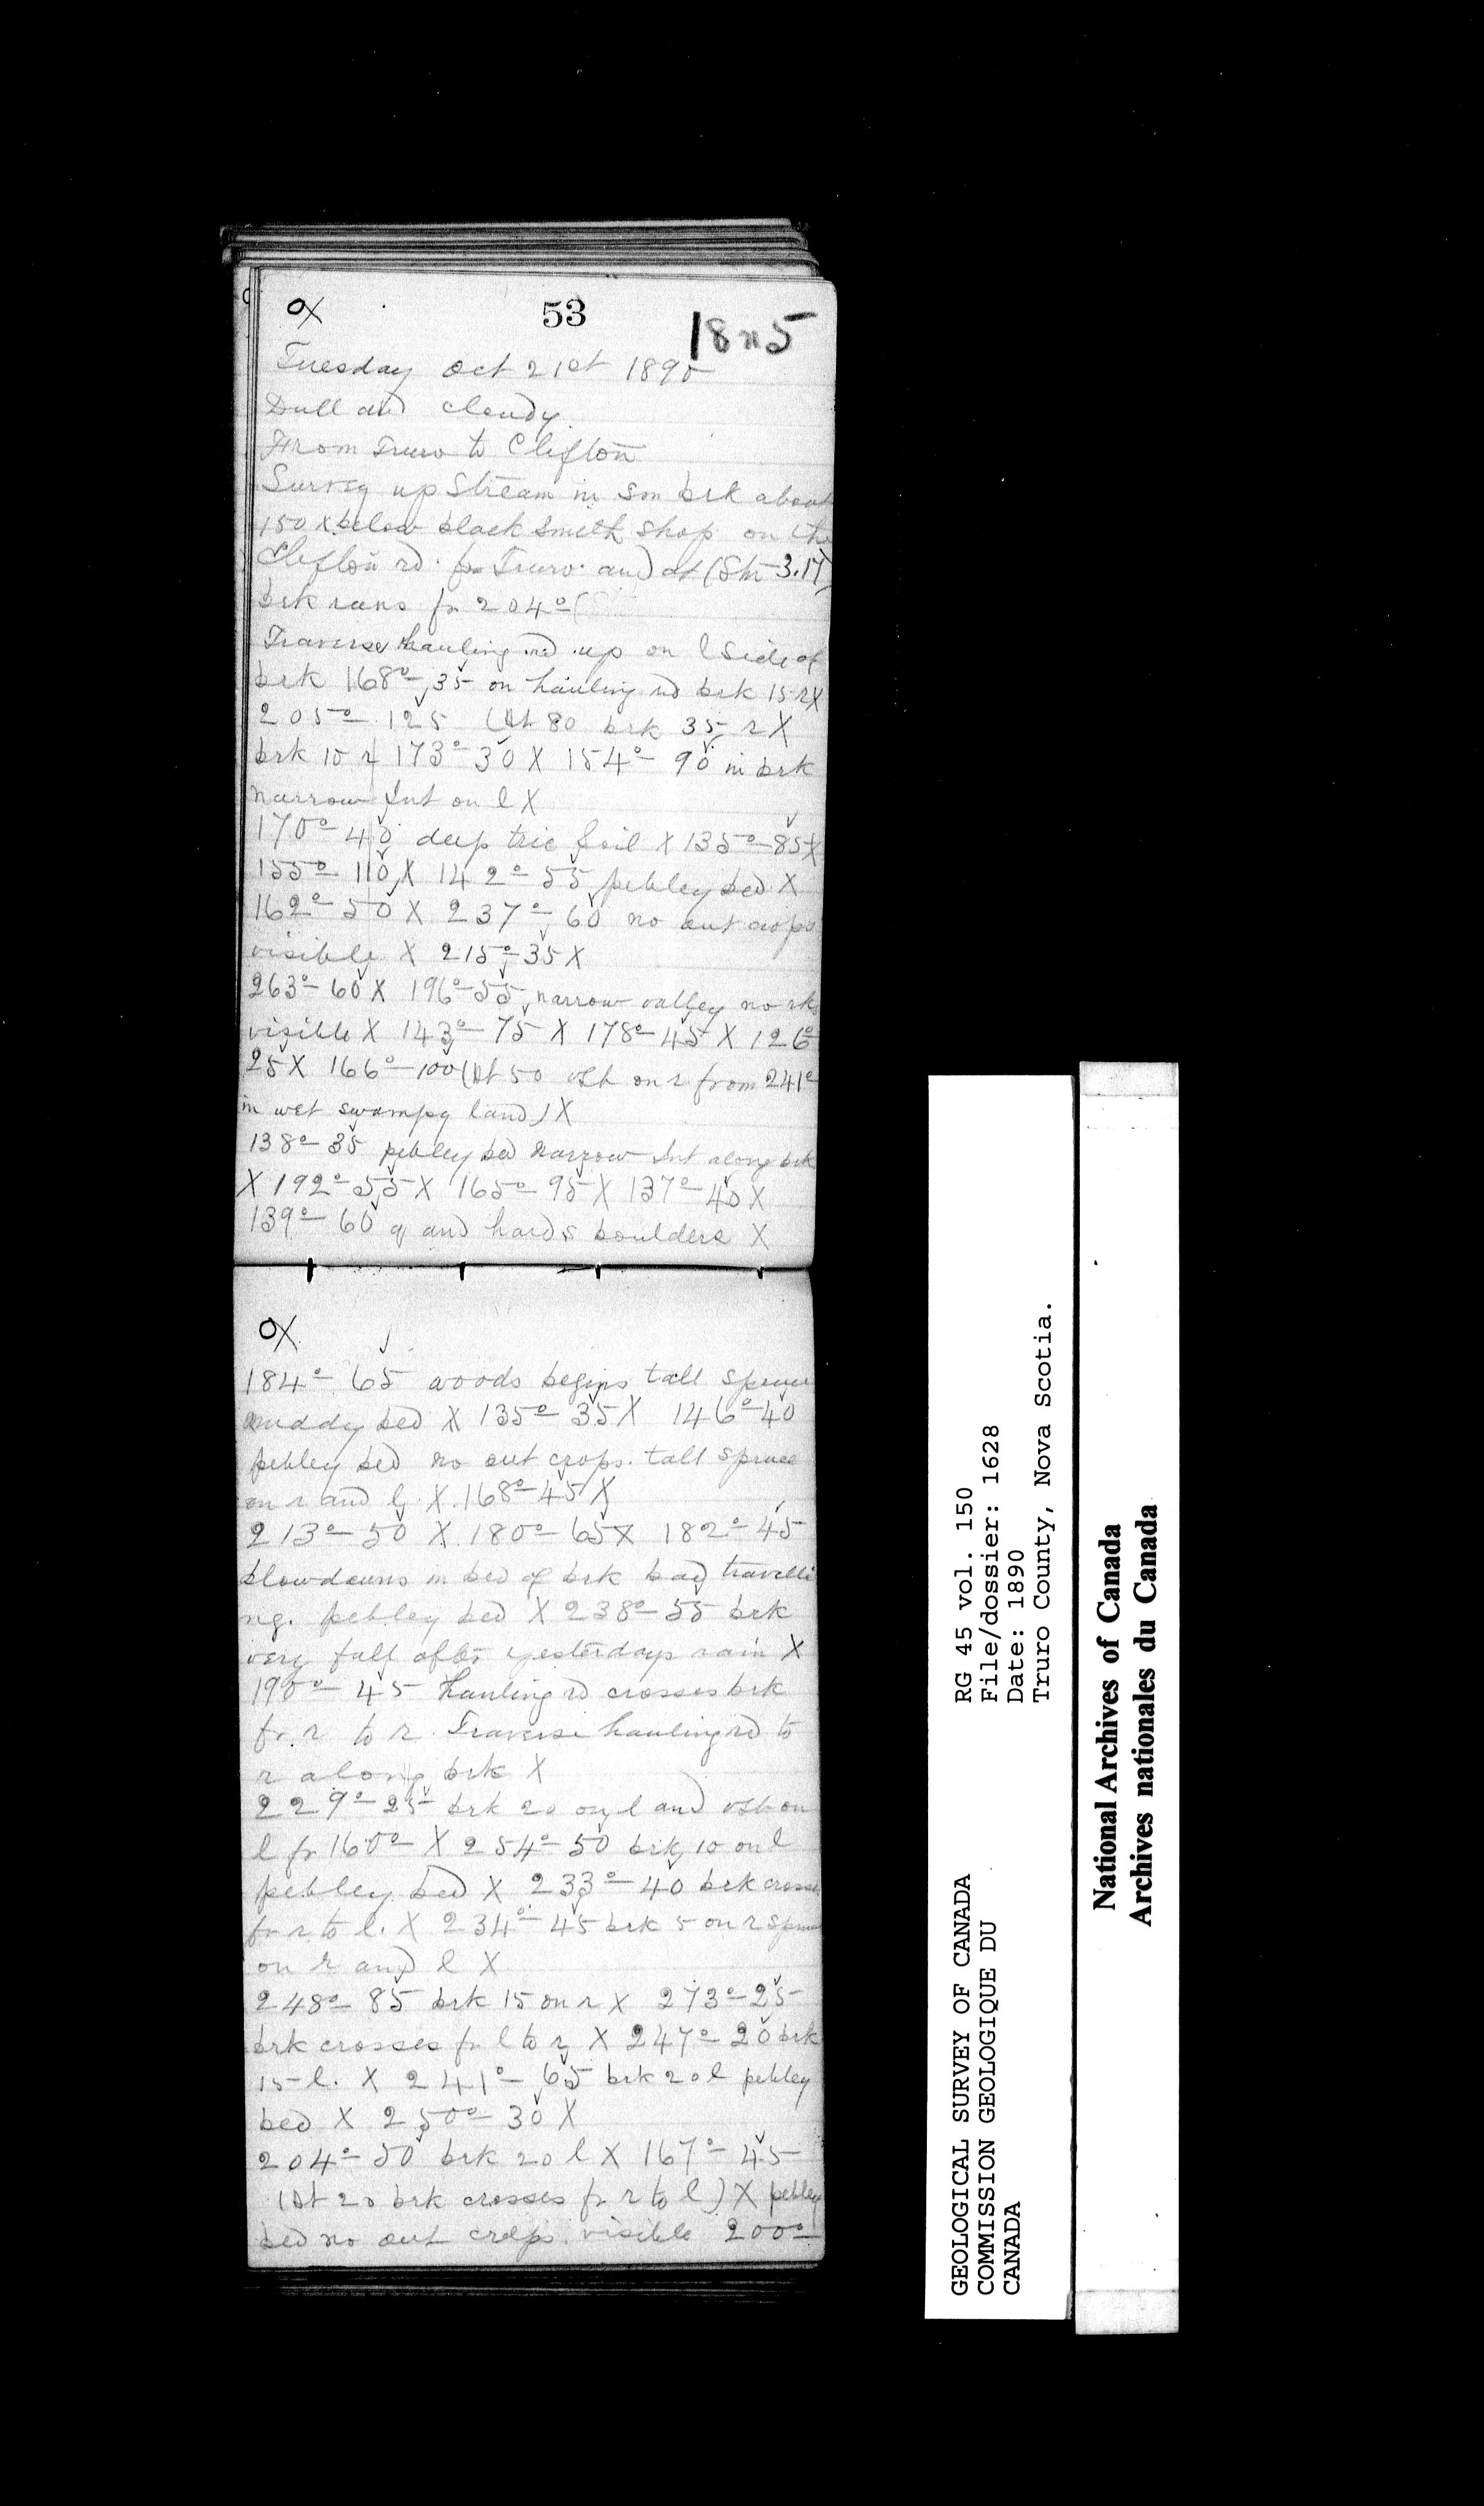 OX
53
18n5
Tuesday Oct 21st 1890
Dull and cloudy
From Truro to Clifton
Survey up Stream in Sm brk about
150 x below black Smith Shop on the
Clifton rd. fr Truro. and at (Stn 3.17)
brk runs fr 204°
Traverse hauling rd up on l side of
brk 168°- 35 on hauling rd brk 15 r X
205°- 125 (At 80 brk 35 r X
brk 10 r 173°- 30 X 154°- 90 in brk
narrow Int on l X
170°- 40 deep soil X 135°- 85 X
155°- 110 X 142°- 55 pebley bed X
162°- 50 X 237°- 60 no out crops
visible X 215°- 35 X
263°- 60 X 196°- 55 narrow valley no rks
visible X 143°- 75 X 178°- 45 X 126°
25 X 166°- 100 (At 50 vsb on r from 241°
in wet swampy land) X
138°- 35 pebley bed narrow Int along brk
X 192°- 55 X 165°- 95 X 137°- 40 X
139°- 60 q and hard s boulders X
OX
184°- 65 woods begins tall spruce
muddy bed X 135°- 35 X 146°- 40
pebley bed no out crops. tall spruce
on r and l X 168°- 45 X
213°- 50 X 180°- 65 X 182°- 45
blowdowns in bed of brk bad travelli
ng. pebley bed X 238°- 55 brk
very full after yesterdays rain X
190°- 45 hauling rd crosses brk
fr. r to r. Traverse hauling rd to
r along brk X
229°- 25 brk 20 on l and vsb on
l fr 160° X 254°- 50 brk 10 on l
pebley bed X 233°- 40 brk crosses
fr r to l. X 234°- 45 brk 5 on r spruce
on r and l X
248°- 85 brk 15 on r X 273°- 25
brk crosses fr l to r X 247°- 20 brk
15 l. X 241°- 65 brk 20 l pebley
bed X 250°- 30 X
204°- 50 brk 20 l X 167°- 45
(At 20 brk crosses fr r to l) X pebley
bed no out crops visible 200°-
GEOLOGICAL SURVEY OF CANADA
COMMISSION GEOLOGIQUE DU
CANADA
RG 45 vol. 150
File/dossier: 1628
Date: 1890
Truro County, Nova Scotia.
National Archives of Canada
Archives nationales du Canada